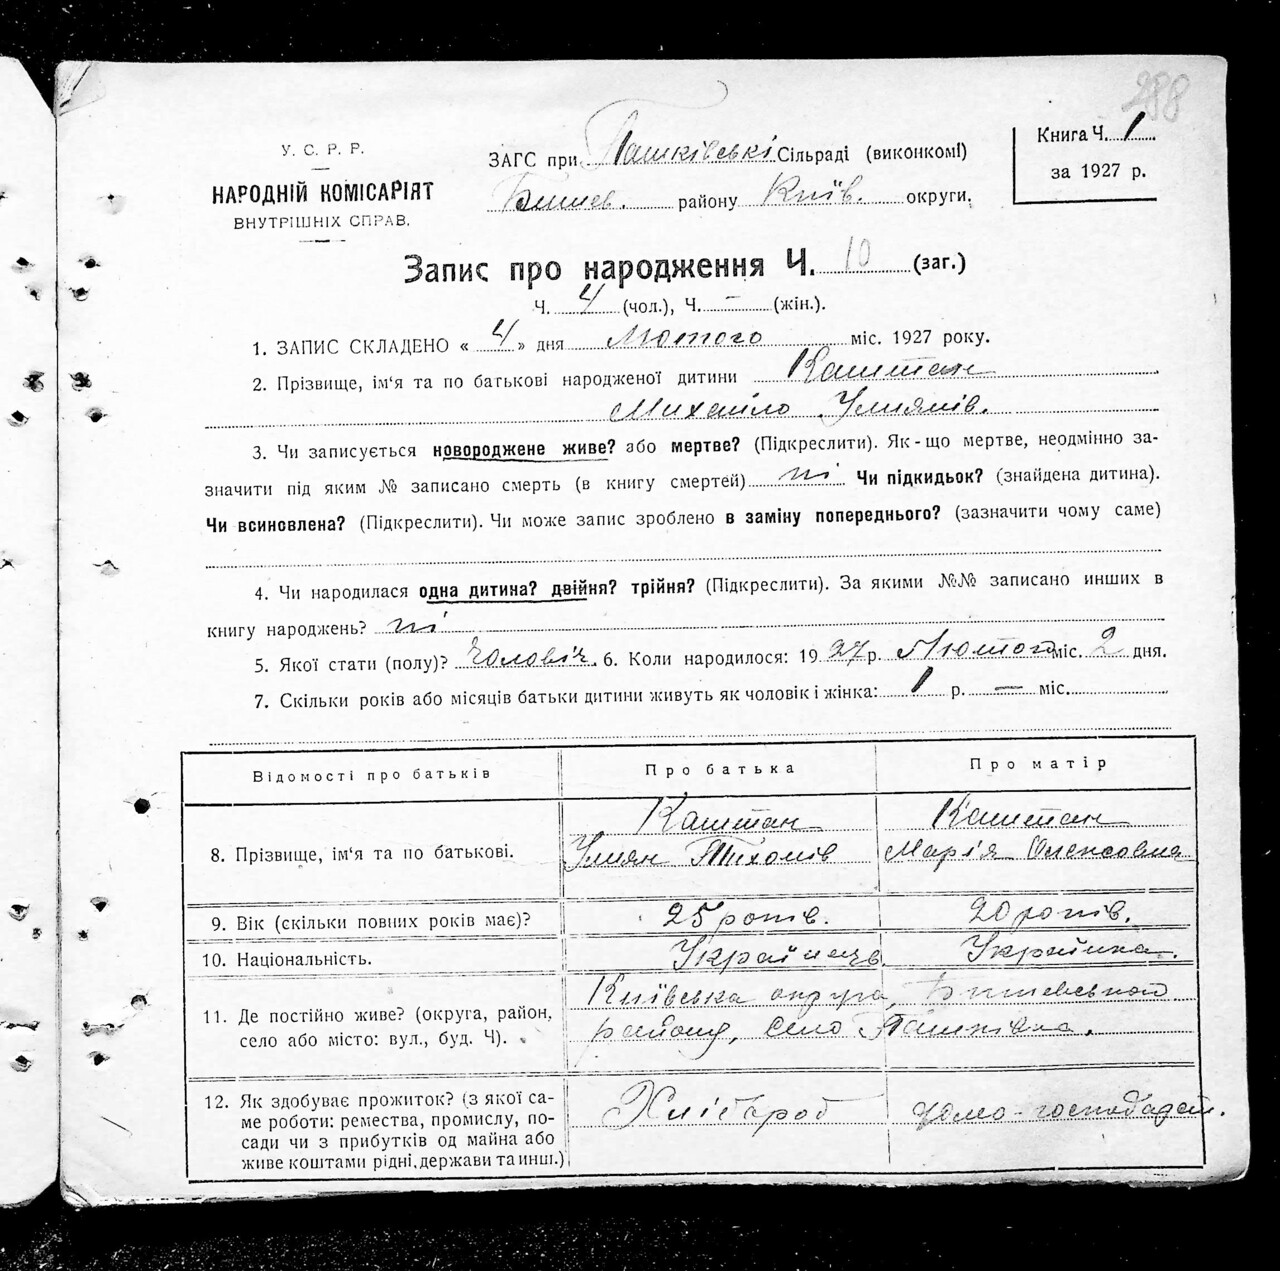 288
У. С. Р. Р.
НАРОДНІЙ КОМІСАРІЯТ
ВНУТРІШНІХ СПРАВ.
ЗАГС при Пашківські Сільраді (виконкомі)
Бишев. району Київ. округи.
Книга Ч. 1
за 1927 р.
Запис про народження Ч. 10 (заг.)
Ч. 4 (чол.), Ч. – (жін.).
1. ЗАПИС СКЛАДЕНО « 4 » дня Лютого міс. 1927 року.
2. Прізвище, ім'я та по батькові народженої дитини Каштан
Михайло Улиянів.
3. Чи записується новороджене живе? або мертве? (Підкреслити). Як-що мертве, неодмінно за-
значити під яким № записано смерть (в книгу смертей) ні Чи підкидьок? (знайдена дитина).
Чи всиновлена? (Підкреслити). Чи може запис зроблено в заміну попереднього? (зазначити чому саме)
4. Чи народилася одна дитина? двійня? трійня? (Підкреслити). За якими №№ записано инших в
книгу народжень? ні
5. Якої стати (полу)? Чоловіч. 6. Коли народилося: 19 27 р. Лютого міс. 2 дня.
7. Скільки років або місяців батьки дитини живуть як чоловік і жінка: 1 р. — міс.
Відомості про батьків Про батька Про матір
8. Прізвище, ім'я та по батькові.
Каштан Каштан
Улиян Тихонів Марія Олексовна
9. Вік (скільки повних років має)? 25 років. 20 років.
10. Національність. Українець Українка.
11. Де постійно живе? (округа, район,
село або місто: вул., буд. Ч).
Київська округа, Бишевського
району, село Пашківка.
12. Як здобуває прожиток? (з якої са-
ме роботи: ремества, промислу, по-
сади чи з прибутків од майна або
живе коштами рідні, держави та инш.)
Хлібороб домо-господарст.